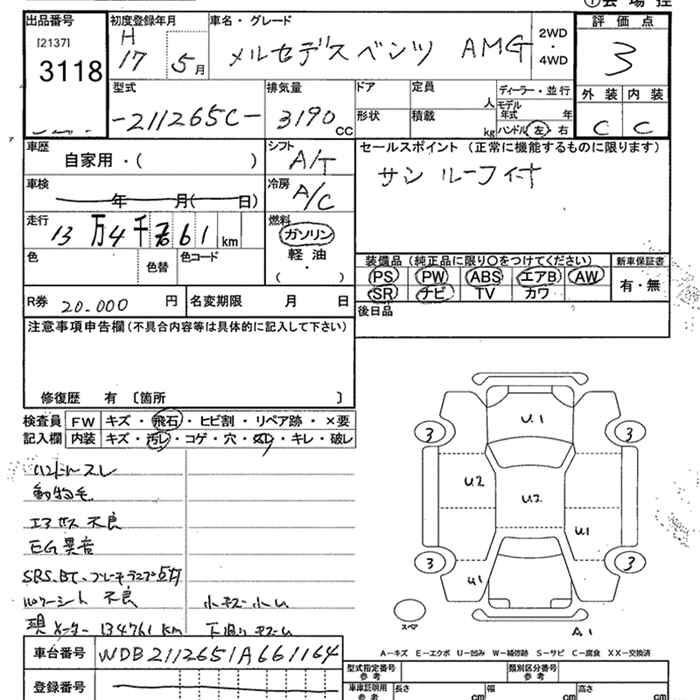 ①会場控
出品番号 初度登録年月 車名・グレード 評価点
[2137]
3118
H
17 5月
メルセデスベンツ AMG
2WD
・
4WD
3
型式 排気量 ドア 定員 ディーラー・並行
-211265C- 3190 CC
人
モデル
年式 年
形状 積載 kg ハンドル 左・右
外装 内装
C C
車歴
自家用・( )
シフト
A/T
セールスポイント (正常に機能するものに限ります)
サンルーフ付
車検
年 月( 日)
冷房
A/C
走行
13万4千761km
燃料
ガソリン
軽油
( ・ )
色 色替 色コード
装備品 (純正品に限り○をつけてください) 新車保証書
PS PW ABS エアB AW
SR ナビ TV カワ
有・無
R券 20.000円 名変期限 月 日
後日品
注意事項申告欄 (不具合内容等は具体的に記入して下さい)
修復歴 有 〔箇所 〕
検査員 FW キズ・飛石・ヒビ割・リペア跡・×要
記入欄 内装 キズ・汚レ・コゲ・穴・スレ・キレ・破レ
ハンドルスレ
動物毛
エアサス不良
EG異音
SRS、BT、ブレーキランプ点灯
パワーシート不良 小キズ小U
現メーター 134761km 下廻りキズU
U.1
3 3
U2 U2
U1
3 3
U1
スペア
A1
A-キズ E-エクボ U-凹み W-補修跡 S-サビ C-腐食 XX-交換済
車台番号 WDB2112651A661164
登録番号
型式指定番号
参考
類別区分番号
参考
車庫証明用
参考
長さ cm 幅 cm 高さ cm